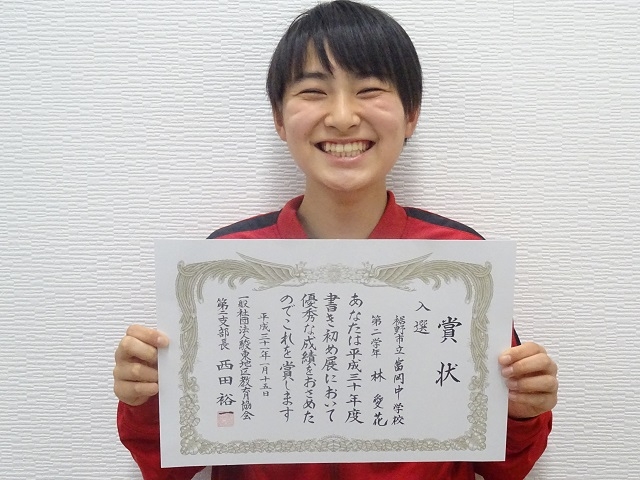 賞状
入選
裾野市立富岡中学校
第二学年 林 愛花
あなたは平成三十年度
書き初め展において
優秀な成績をおさめた
のでこれを賞します
平成三十一年一月十五日
一般社団法人駿東地区教育協会
第二支部長 西田裕一